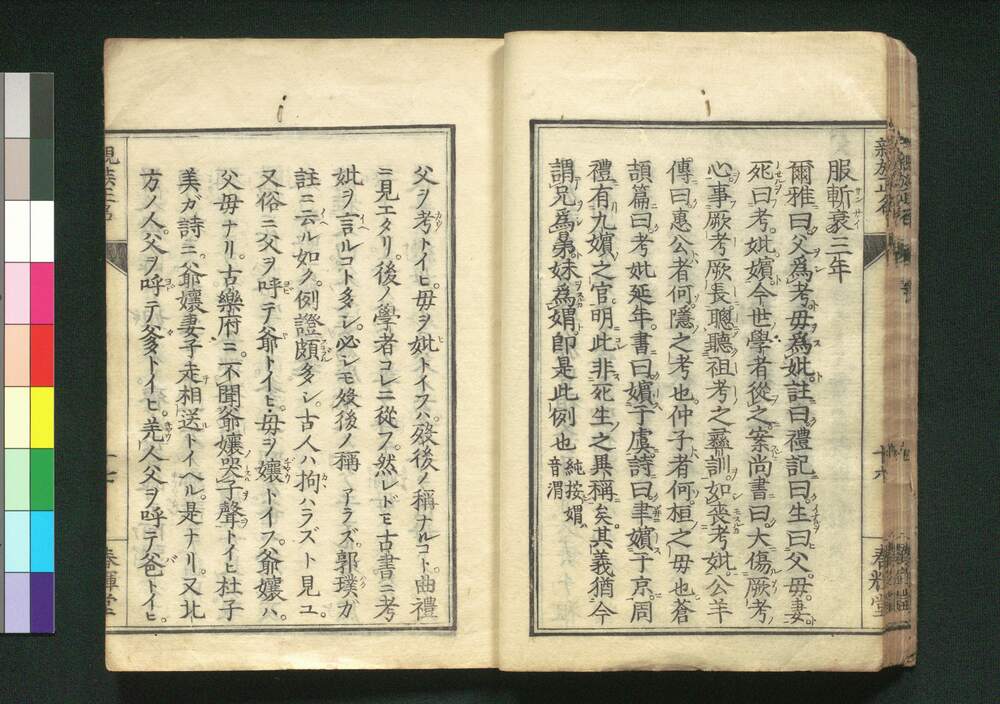 服斬衰三年
爾雅曰父爲考母爲妣註曰禮記曰生曰父母妻
死曰考妣嬪今世學者從之案尚書曰大傷厥考
心事厥考厥長聰聽祖考之彝訓如喪考妣公羊
傳曰惠公者何隱之考也仲子者何桓之母也蒼
頡篇曰考妣延年書曰嬪于虞詩曰聿嬪于京周
禮有九嬪之官明此非死生之異稱矣其義猶今
謂兄爲晜妹爲媦即是此例也 純按媦音渭
父ヲ考トイヒ。母ヲ妣トイフハ。歿後ノ稱ナルコト。曲禮
ニ見エタリ。後ノ學者コレニ從フ。然レドモ古書ニ考
妣ヲ言ルコト多シ。必シモ歿後ノ稱ニアラズ。郭璞ガ
註ニ云ル如ク。例證頗多シ。古人ハ拘ハラズト見ユ。
又俗ニ父ヲ呼テ爺トイヒ。母ヲ孃トイフ。爺孃ハ。
父母ナリ。古樂府ニ。不聞爺孃哭子聲トイヒ杜子
美ガ詩ニ。爺孃妻子走相送トイヘル是ナリ。又北
方ノ人。父ヲ呼テ爹トイヒ。羌人父ヲ呼テ爸トイヒ。
親族正名
十六
春輝堂